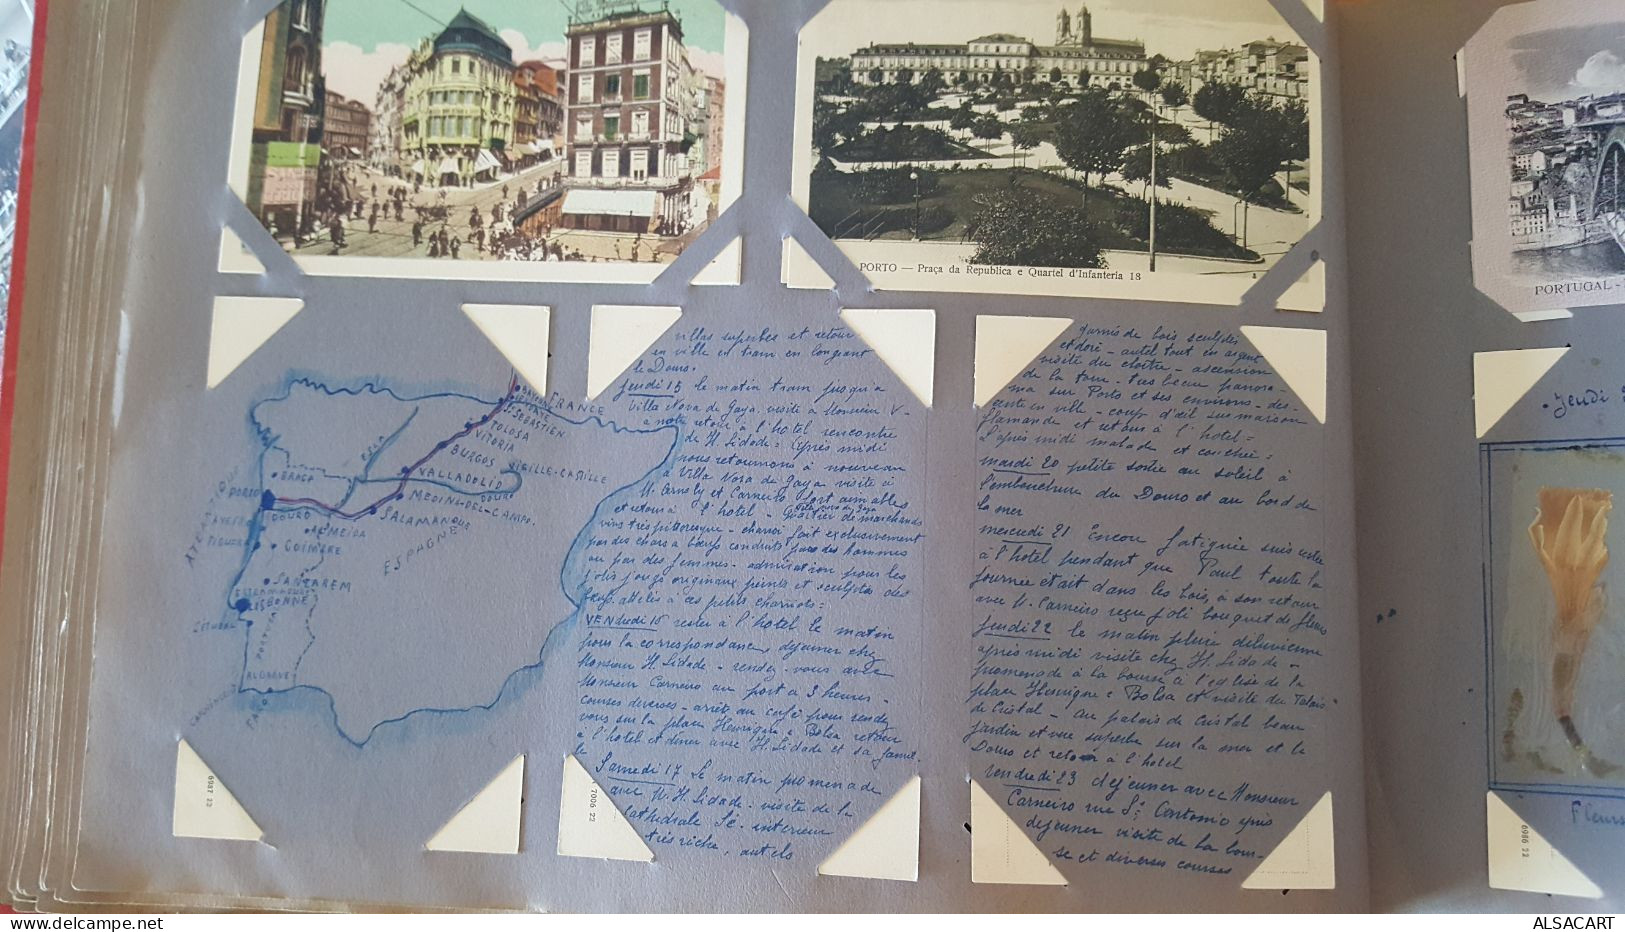 PORTO — Praça da Republica e Quartel d'Infanteria 18
PORTUGAL -
FRANCE
S-SEBASTIEN
TOLOSA
VITORIA
BURGOS
VALLADOLID
VIEILLE-CASTILLE
DOURO
MEDINA-DEL-CAMPO.
SALAMANQUE
ESPAGNE
ESLA
BRAGA
PORTO
DOURO
ALMEIDA
COÏMBRE
SANTAREM
LISBONNE
SETUBAL
PORTUGAL
ALGARVE
FARO
villas superbes et retour
en ville en tram en longeant
le Douro.
Jeudi 15 le matin tram jusqu'à
Villa Nova de Gaya, visite à Monsieur V-
a notre retour à l'hotel rencontre
de H. Lidade = l'après midi
nous retournons à nouveau
à Villa Nova de Gaya visite à
et Carneiro fort aimables
et retour à l'hotel - Quartier de marchands
Villa nova de Gaya
vins très pittoresque - charroi fait exclusivement
par des chars à bœufs conduits par des hommes
ou par des femmes - admiration pour les
jolis jougs originaux peints et sculptés des
bœufs attelés à ces petits chariots =
VENDREDI 16 rester à l'hotel le matin
pour la correspondance, dejeuner chez
Monsieur H. Lidade - rendez-vous avec
Monsieur Carneiro au port a 3 heures -
courses diverses - arrêt au café pour rendez
vous sur la place Henrique e Bolsa retour
à l'hotel et diner avec H. Lidade et sa famil.
le
Samedi 17 Le matin promenade
avec M. H. Lidade - visite de la
cathédrale Sé - interieur
très riche, autels
garnis de bois sculptés
et doré - autel tout en argent
visite du cloitre - ascension
de la tour - très beau panora-
ma sur Porto et ses environs - des-
cente en ville - coup d'œil sur maison
flamande et retour à l'hotel =
L'après midi malade et couchée =
mardi 20 petite sortie au soleil à
l'embouchure du Douro et au bord de
la mer
mercredi 21 Encore fatiguée suis restée
à l'hotel pendant que Paul toute la
journée etait dans les bois, à son retour
avec M. Carneiro reçu joli bouquet de fleurs
Jeudi 22 le matin pluie diluvienne
après midi visite chez H. Lidade -
promenade à la bourse à l'eglise de la
place Henrique e Bolsa et visite du Palais
de Cristal - au palais de Cristal beau
jardin et vue superbe sur la mer et le
Douro et retour à l'hotel
Vendredi 23 dejeuner avec Monsieur
Carneiro rue St Antonio après
dejeuner visite de la bour-
se et diverses courses
Jeudi
Fleurs
6987 22
7006 22
6986 22
ALSACART